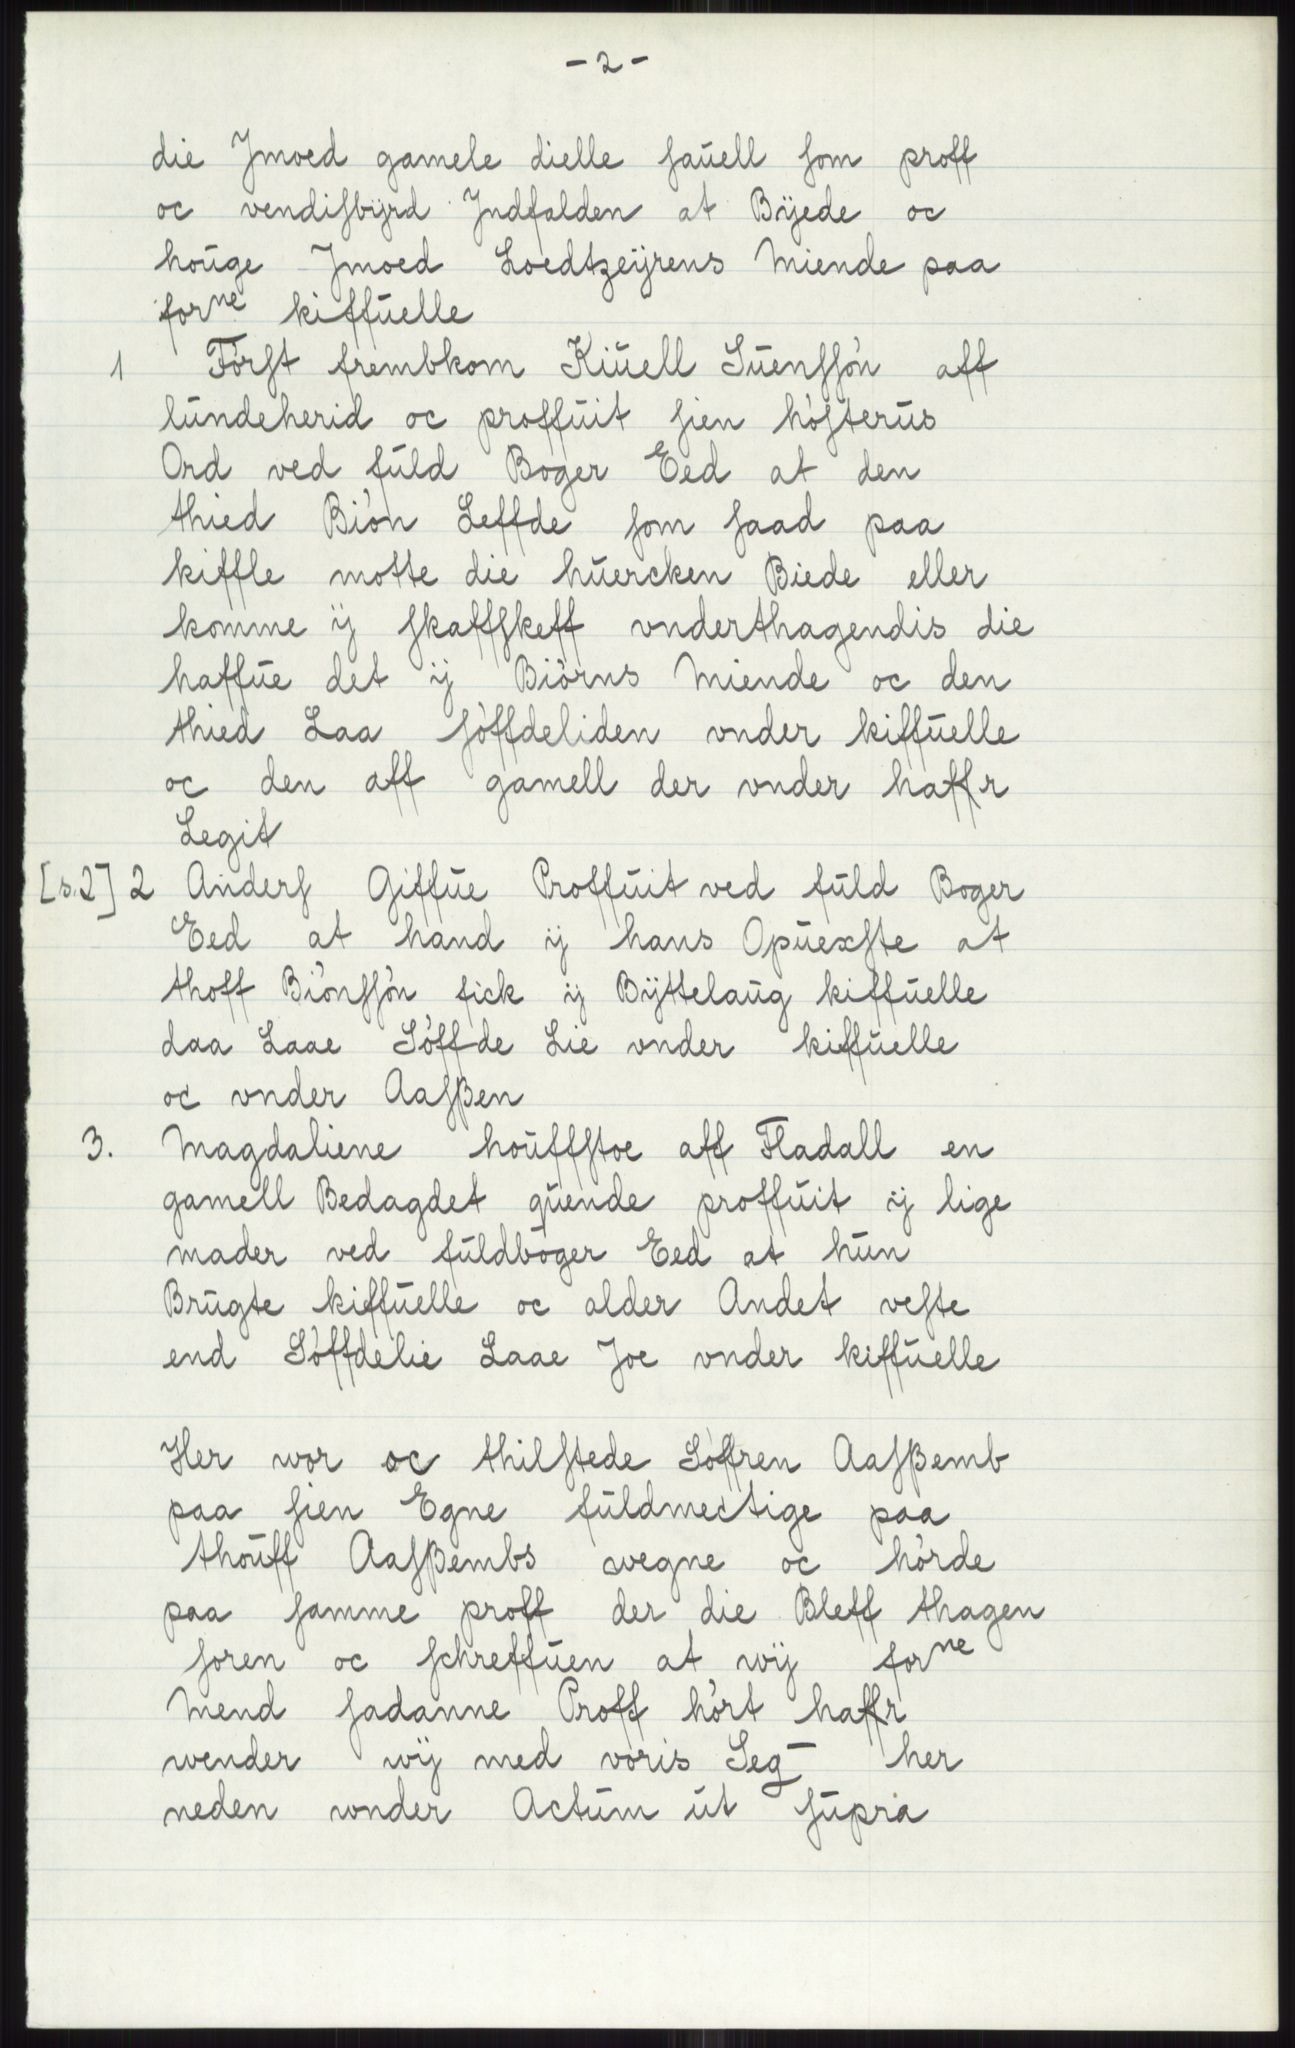 - 2 -
die Jmoed gamele dielle sauell som proff
oc vendisbyrd Jndfalden at Byede oc
houge Jmoed Loedtzeyrens Miende paa
forne kiffuelle
1 Først frembkom Kiuell Suenssøn aff
lundeherid oc proffuit sien høsterus
Ord ved fuld Boger Eed at den
thied Biøn Leffde som saad paa
kiffle motte die huercken Biede eller
komme ij skaffskeff vnderthagendis die
haffue det ij Biørns Miende oc den
thied Laa søffdeliden vnder kiffuelle
oc den aff gamell der vnder haffr
Legit
[s.2] 2 Anders Giffue Proffuit ved fuld Boger
Eed at hand ij hans Opuexste at
thoff Biønssøn fick ij Byttelaug kiffuelle
daa Laae Søffde Lie vnder kiffuelle
oc vnder Aasßen
3. Magdaliene houffstoe aff Fladall en
gamell Bedagdet quende proffuit ij lige
mader ved fuldboger Eed at hun
Brugte kiffuelle oc alder Andet veste
end Søffdelie Laae Joe vnder kiffuelle
Her wor oc thilstede Søffren Aasßemb
paa sien Egne fuldmectige paa
thouff Aasßembs wegne oc hørde
paa samme proff der die Bleff thagen
soren oc schreffuen at wij forne
Mend sadanne Proff hørt haffr
wender wij med voris Seg her
neden wnder Actum ut supra